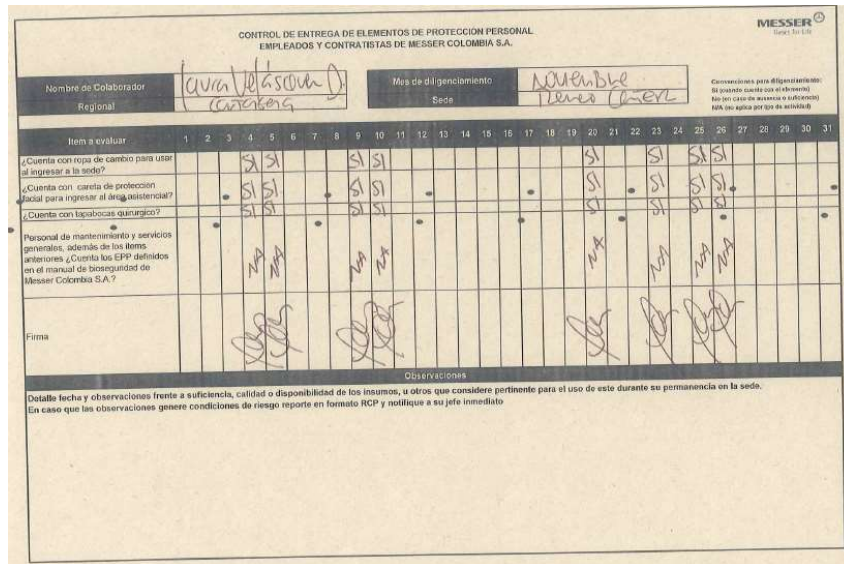 CONTROL DE ENTREGA DE ELEMENTOS DE PROTECCIÓN PERSONAL
EMPLEADOS Y CONTRATISTAS DE MESSER COLOMBIA S.A.
MESSER
Gases for Life
Nombre de Colaborador Laura Velásquez
Mes de diligenciamiento NOVIEMBRE
Regional Sede
Convenciones para diligenciamiento:
Si (cuando cuente con el elemento)
No (en caso de ausencia o suficiencia)
N/A (no aplica por tipo de actividad)
Item a evaluar 1 2 3 4 5 6 7 8 9 10 11 12 13 14 15 16 17 18 19 20 21 22 23 24 25 26 27 28 29 30 31
¿Cuenta con ropa de cambio para usar
al ingresar a la sede?
SI SI SI SI SI SI SI SI
¿Cuenta con careta de protección
facial para ingresar al área asistencial?
SI SI SI SI SI SI SI SI
¿Cuenta con tapabocas quirurgico?
SI SI SI SI SI SI SI SI
Personal de mantenimiento y servicios
generales, además de los items
anteriores ¿Cuenta los EPP definidos
en el manual de bioseguridad de
Messer Colombia S.A.?
NA NA NA NA NA NA NA NA
Firma
Observaciones
Detalle fecha y observaciones frente a suficiencia, calidad o disponibilidad de los insumos, u otros que considere pertinente para el uso de este durante su permanencia en la sede.
En caso que las observaciones genere condiciones de riesgo reporte en formato RCP y notifique a su jefe inmediato